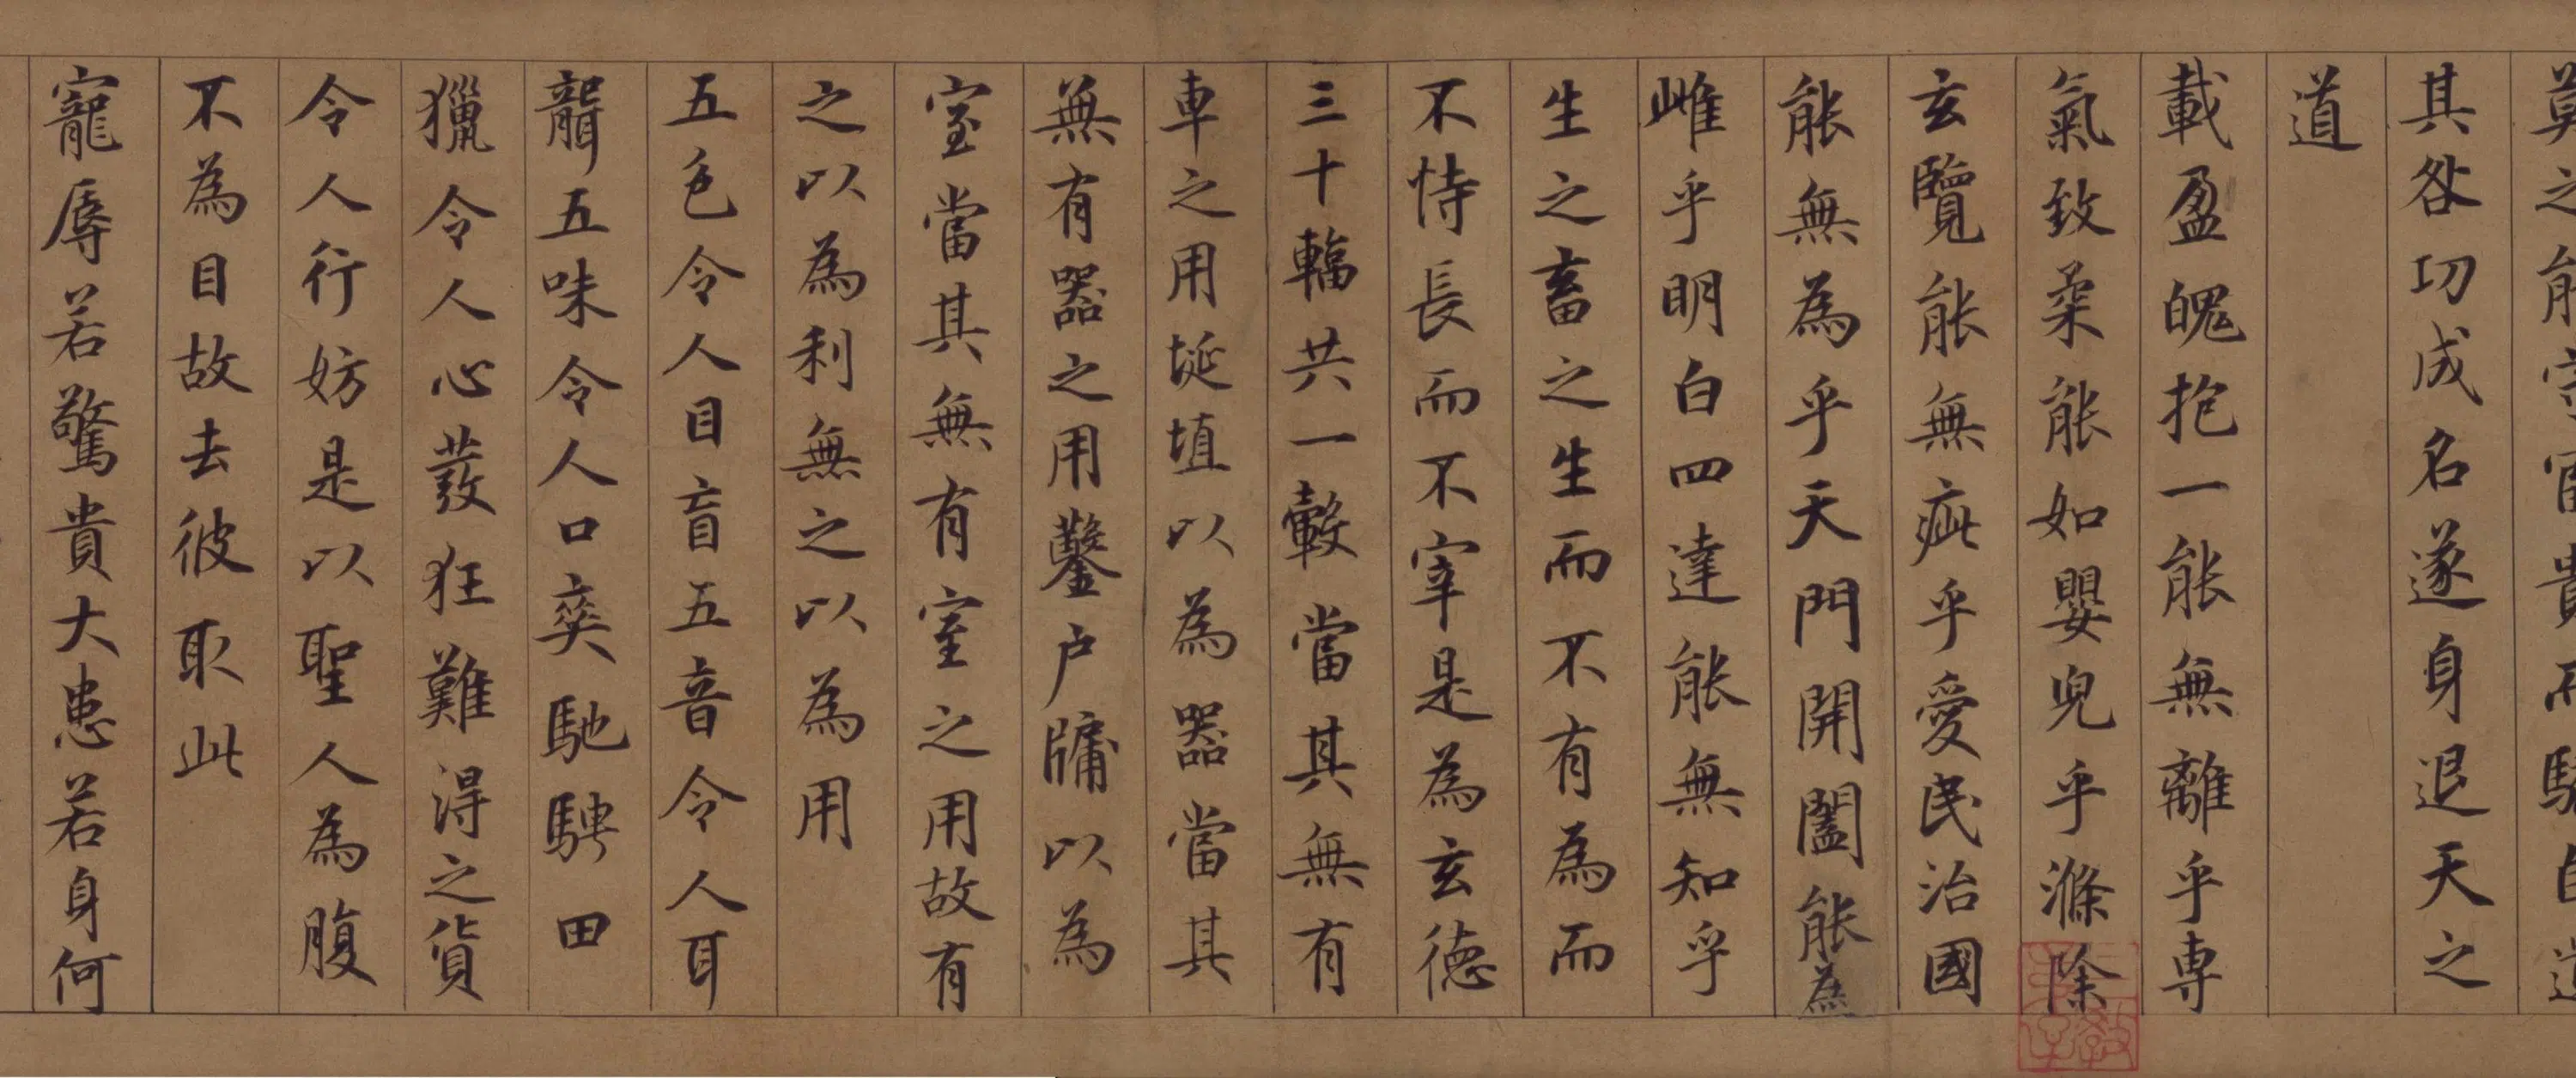 莫之能守富貴而驕自遺
其咎功成名遂身退天之
道
載盈魄抱一能無離乎専
氣致柔能如嬰兒乎滌除
玄覽能無疵乎愛民治國
能無為乎天門開闔能為
雌乎明白四達能無知乎
生之畜之生而不有為而
不恃長而不宰是為玄德
三十輻共一轂當其無有
車之用埏埴以為器當其
無有器之用鑿戶牖以為
室當其無有室之用故有
之以為利無之以為用
五色令人目盲五音令人耳
聾五味令人口爽馳騁田
獵令人心發狂難得之貨
令人行妨是以聖人為腹
不為目故去彼取此
寵辱若驚貴大患若身何